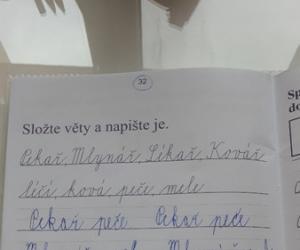 32
Složte věty a napište je.
Pekař, Mlynář, Lékař, Kovář
léčí, ková, peče, mele
Pekař peče Pekař peče
Sp
do